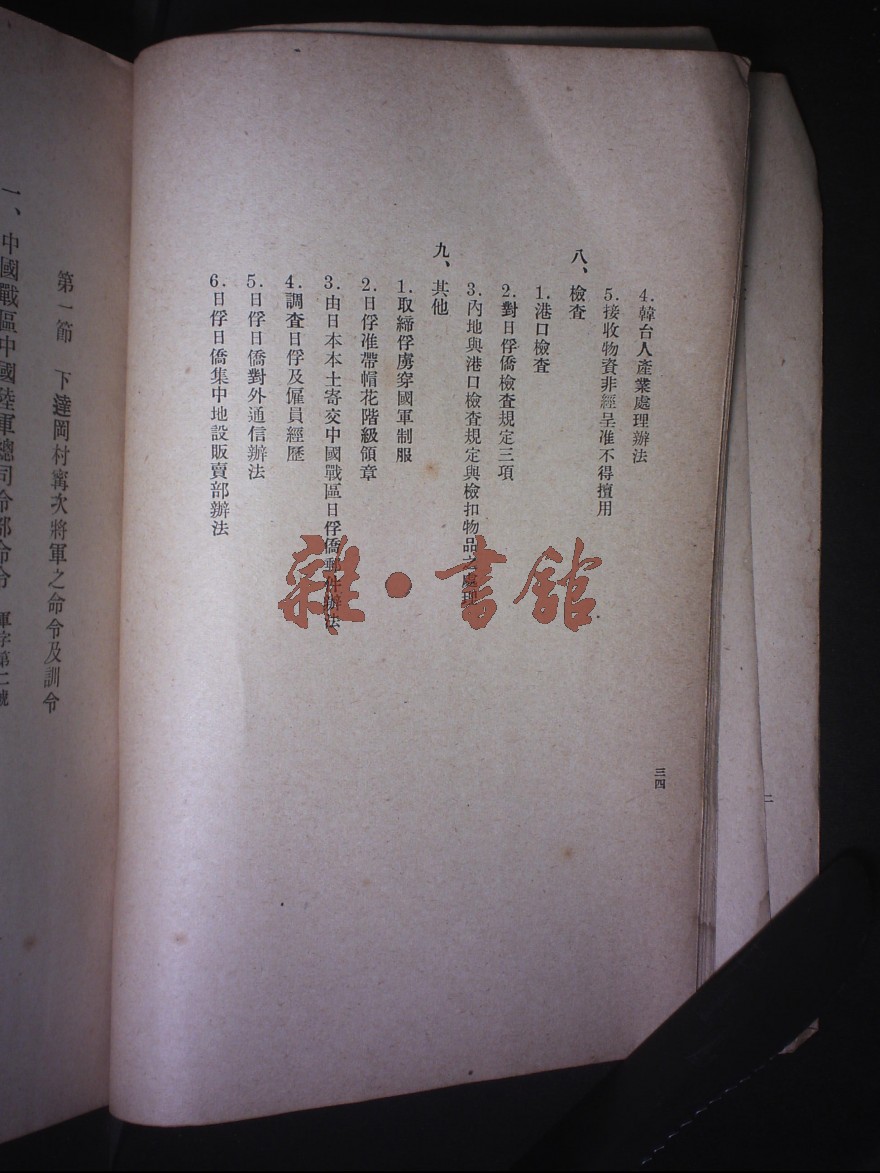 4.韓台人產業處理辦法
5.接收物資非經呈准不得擅用
八、檢查
1.港口檢查
2.對日俘僑檢查規定三項
3.內地與港口檢查規定與檢扣物品之處理
九、其他
1.取締俘虜穿國軍制服
2.日俘准帶帽花階級領章
3.由日本本土寄交中國戰區日俘僑郵件辦法
4.調查日俘及僱員經歷
5.日俘日僑對外通信辦法
6.日俘日僑集中地設販賣部辦法
三四
第一節 下達岡村寧次將軍之命令及訓令
一、中國戰區中國陸軍總司令部命令 軍字第二號
二
雜·書館